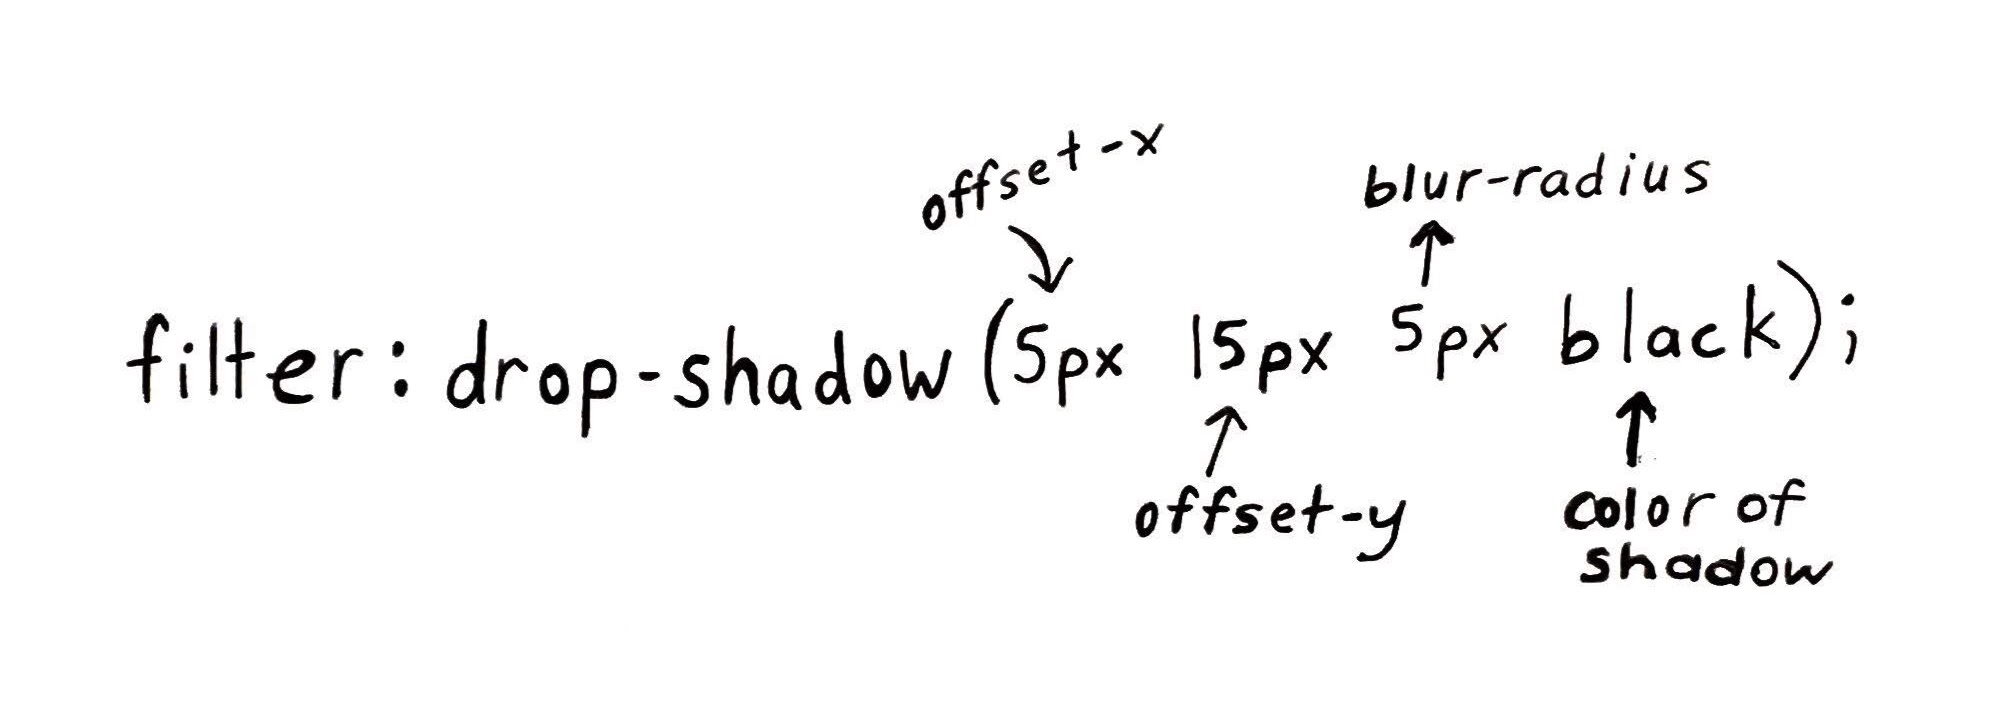 offset-x
blur-radius
filter: drop-shadow(5px 15px 5px black);
offset-y
color of
shadow